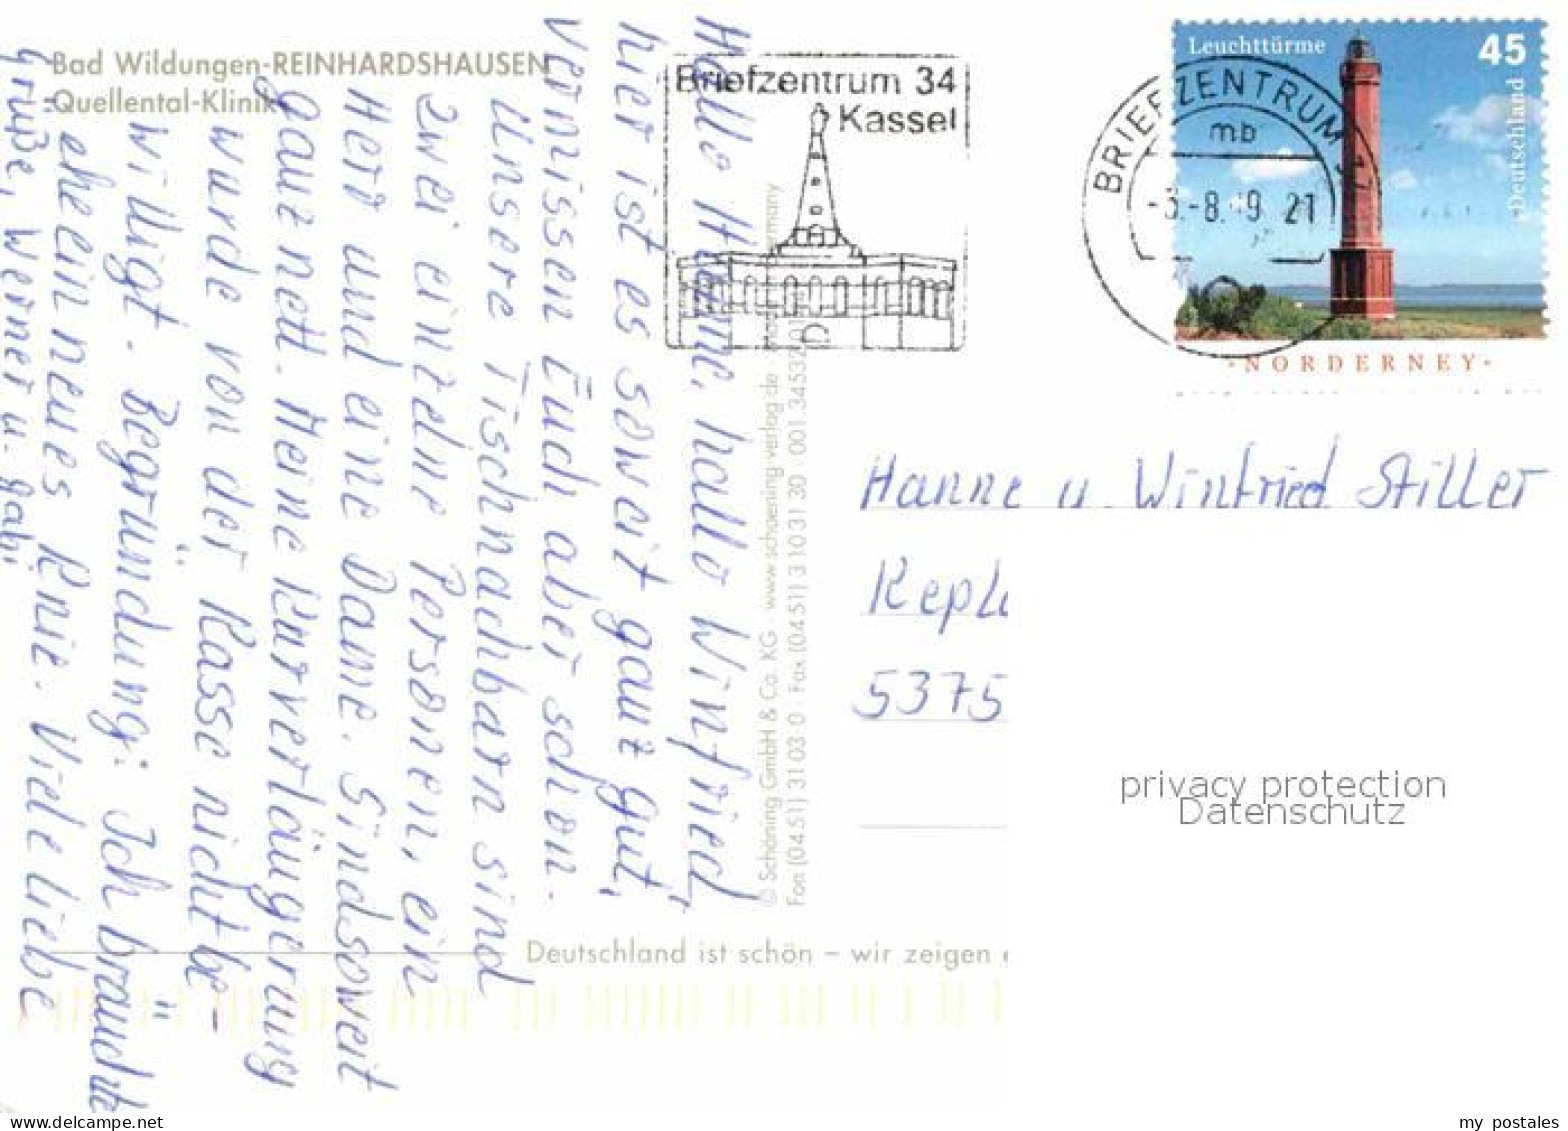 Bad Wildungen-REINHARDSHAUSEN
Quellental-Klinik
Briefzentrum 34
Kassel
BRIEFZENTRUM
mb
-8. 21
Leuchttürme
45
Deutschland
·NORDERNEY·
Hallo Hanne, hallo Winfried,
hier ist es soweit ganz gut,
vermissen Euch aber schon.
Unsere Tischnachbarn sind
zwei einzelne Personen, ein
Herr und eine Dame. Sind soweit
ganz nett. Meine Kurverlängerung
wurde von der Kasse nicht be-
willigt. Begründung: Ich bräuchte
eh ein neues Knie. Viele liebe
Grüße, Werner u. Gabi
© Schöning GmbH & Co. KG · www.schoening-verlag.de
Fon (0451) 31 03 0 · Fax (0451) 3 10 31 30 · 001 34532 01
Hanne u. Winfried Stiller
Kepl
5375
privacy protection
Datenschutz
Deutschland ist schön – wir zeigen e
my postales